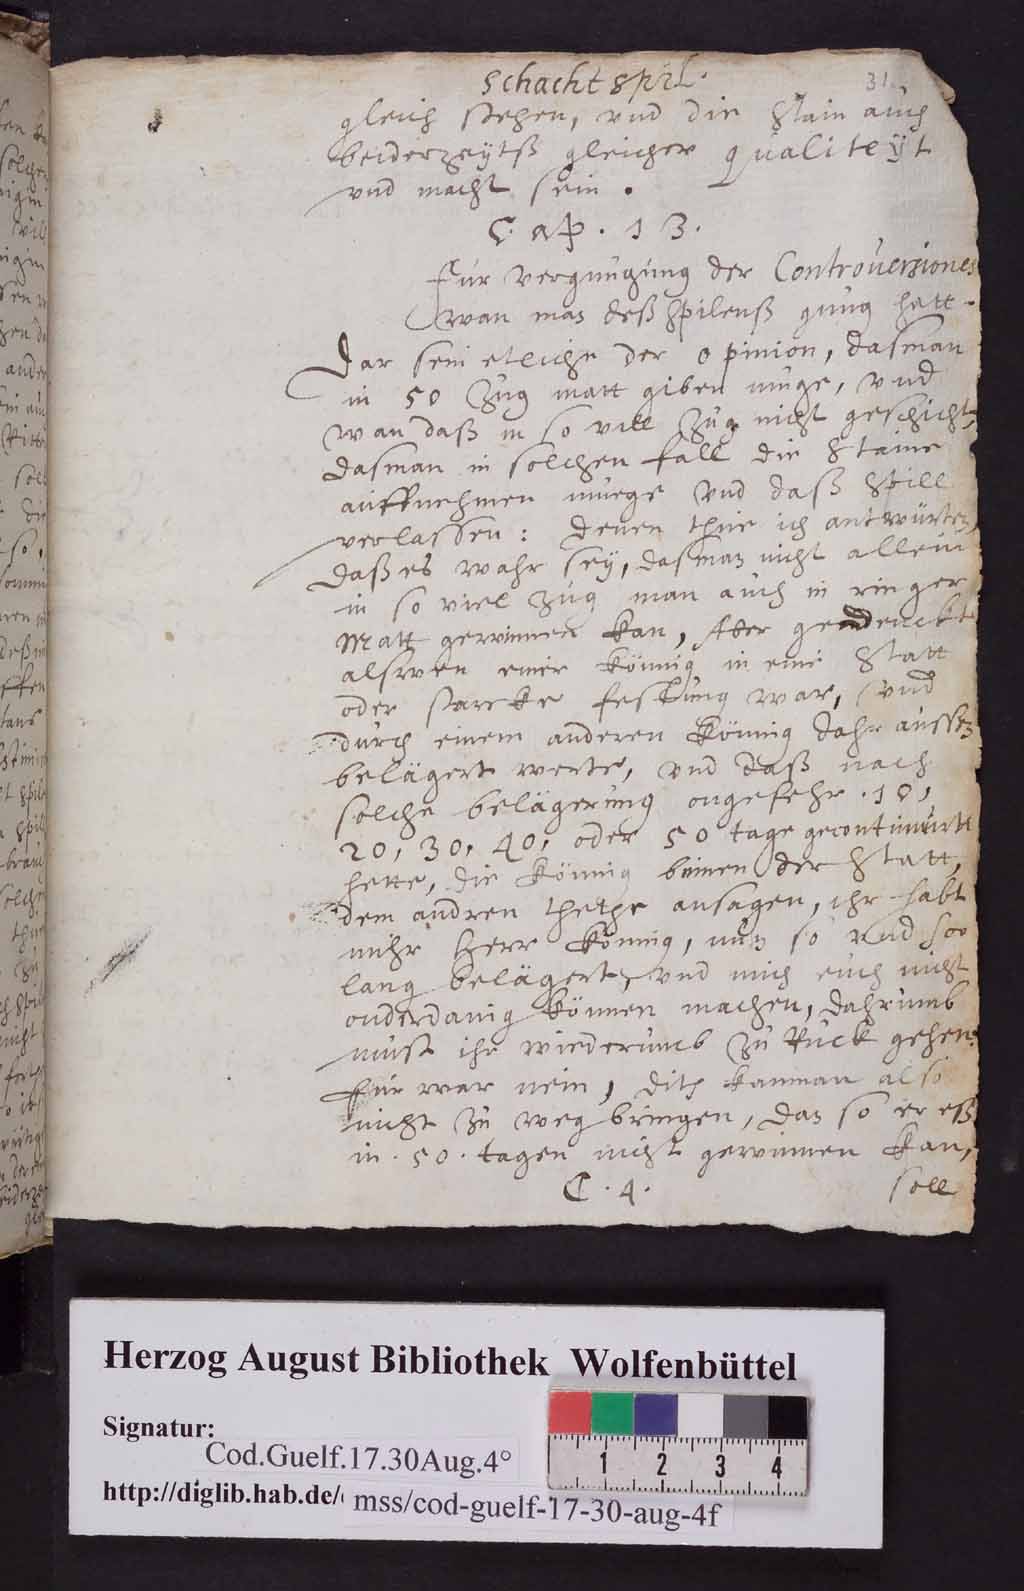 Schacht spil.
31
gleich stehen, vnd die stain auch
beiderzeÿtß gleicher qualiteÿt
vnd macht sein.
Cap. 13.
Fur vergnugung der Controuersiones
wan man deß spilenß gnug hatt.
Dar sein etliche der opinion, dasman
in 50 zug matt giben muge, vnd
wan daß in so vill zug nicht geschicht,
dasman in solchen fall die staine
auffnehmen muege vnd daß spill
verlassen: denen thue ich antwürten,
daß es wahr sey, dasman nicht allein
in so viel zug man auch in ringer
Matt gewinnen kan, Aber gedenckt
alswen einer könnig in eine statt
oder starcke festung war, vnd
durch einem anderen könnig dahr aussen
belägert werte, vnd daß nach
solche belägerung ongefehr .10,
20, 30, 40, oder 50 tage gecontinuirtt
hette, die könnig binnen der statt,
dem andren thethe ansagen, ihr habt
mihr herr könnig, nun so vnd soo
lang belägert, vnd mich euch nicht
onderdanig können machen, dahrumb
must ihr wiederumb zu Ruck gehen.
Fur war nein, dith kanman also
nicht zu weg bringen, dan so er eß
in .50. tagen nicht gewinnen kan,
C.4.
soll
Herzog August Bibliothek Wolfenbüttel
Signatur:
Cod.Guelf.17.30Aug.4°
http://diglib.hab.de/
mss/cod-guelf-17-30-aug-4f
1 2 3 4